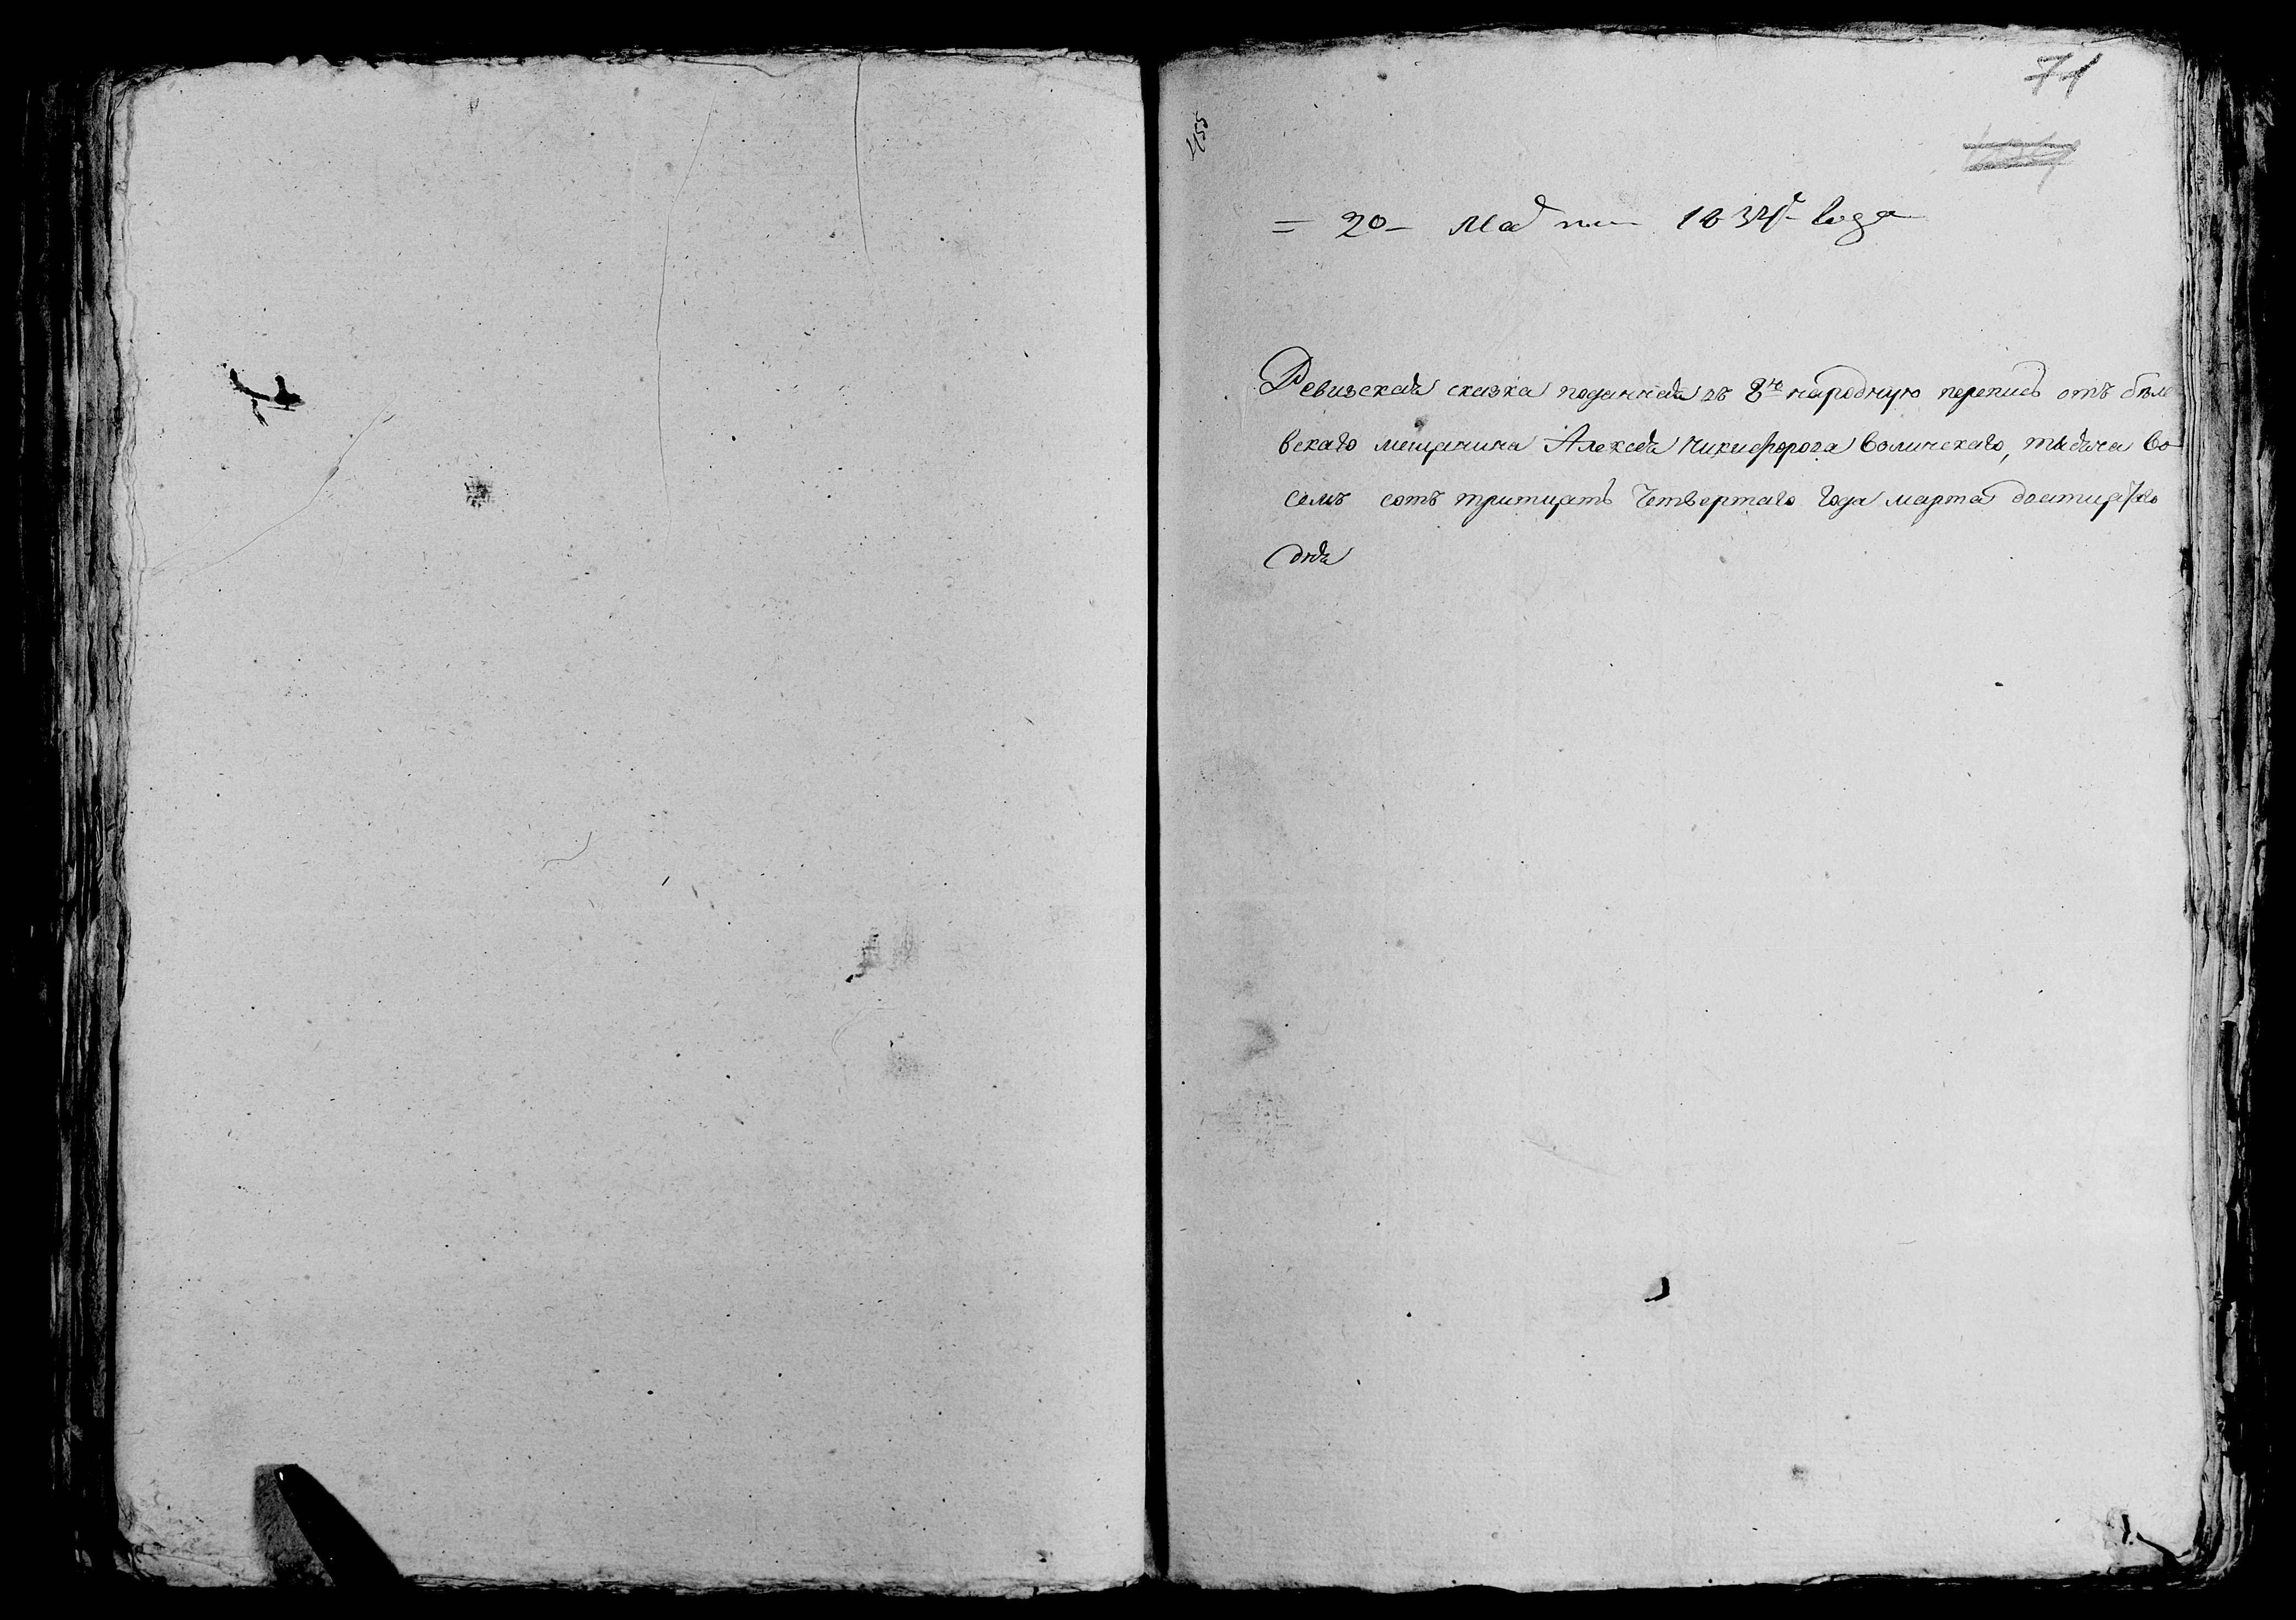 71
455
= 20 - Ма 1834 года
Ревизская сказка поданная въ 8ю народную перепись отъ бѣле
вскаго мещанина Алексея никифорова волинскаго, тысяча во
семъ сотъ тритцать четвертаго года марта дватцатаго
дня